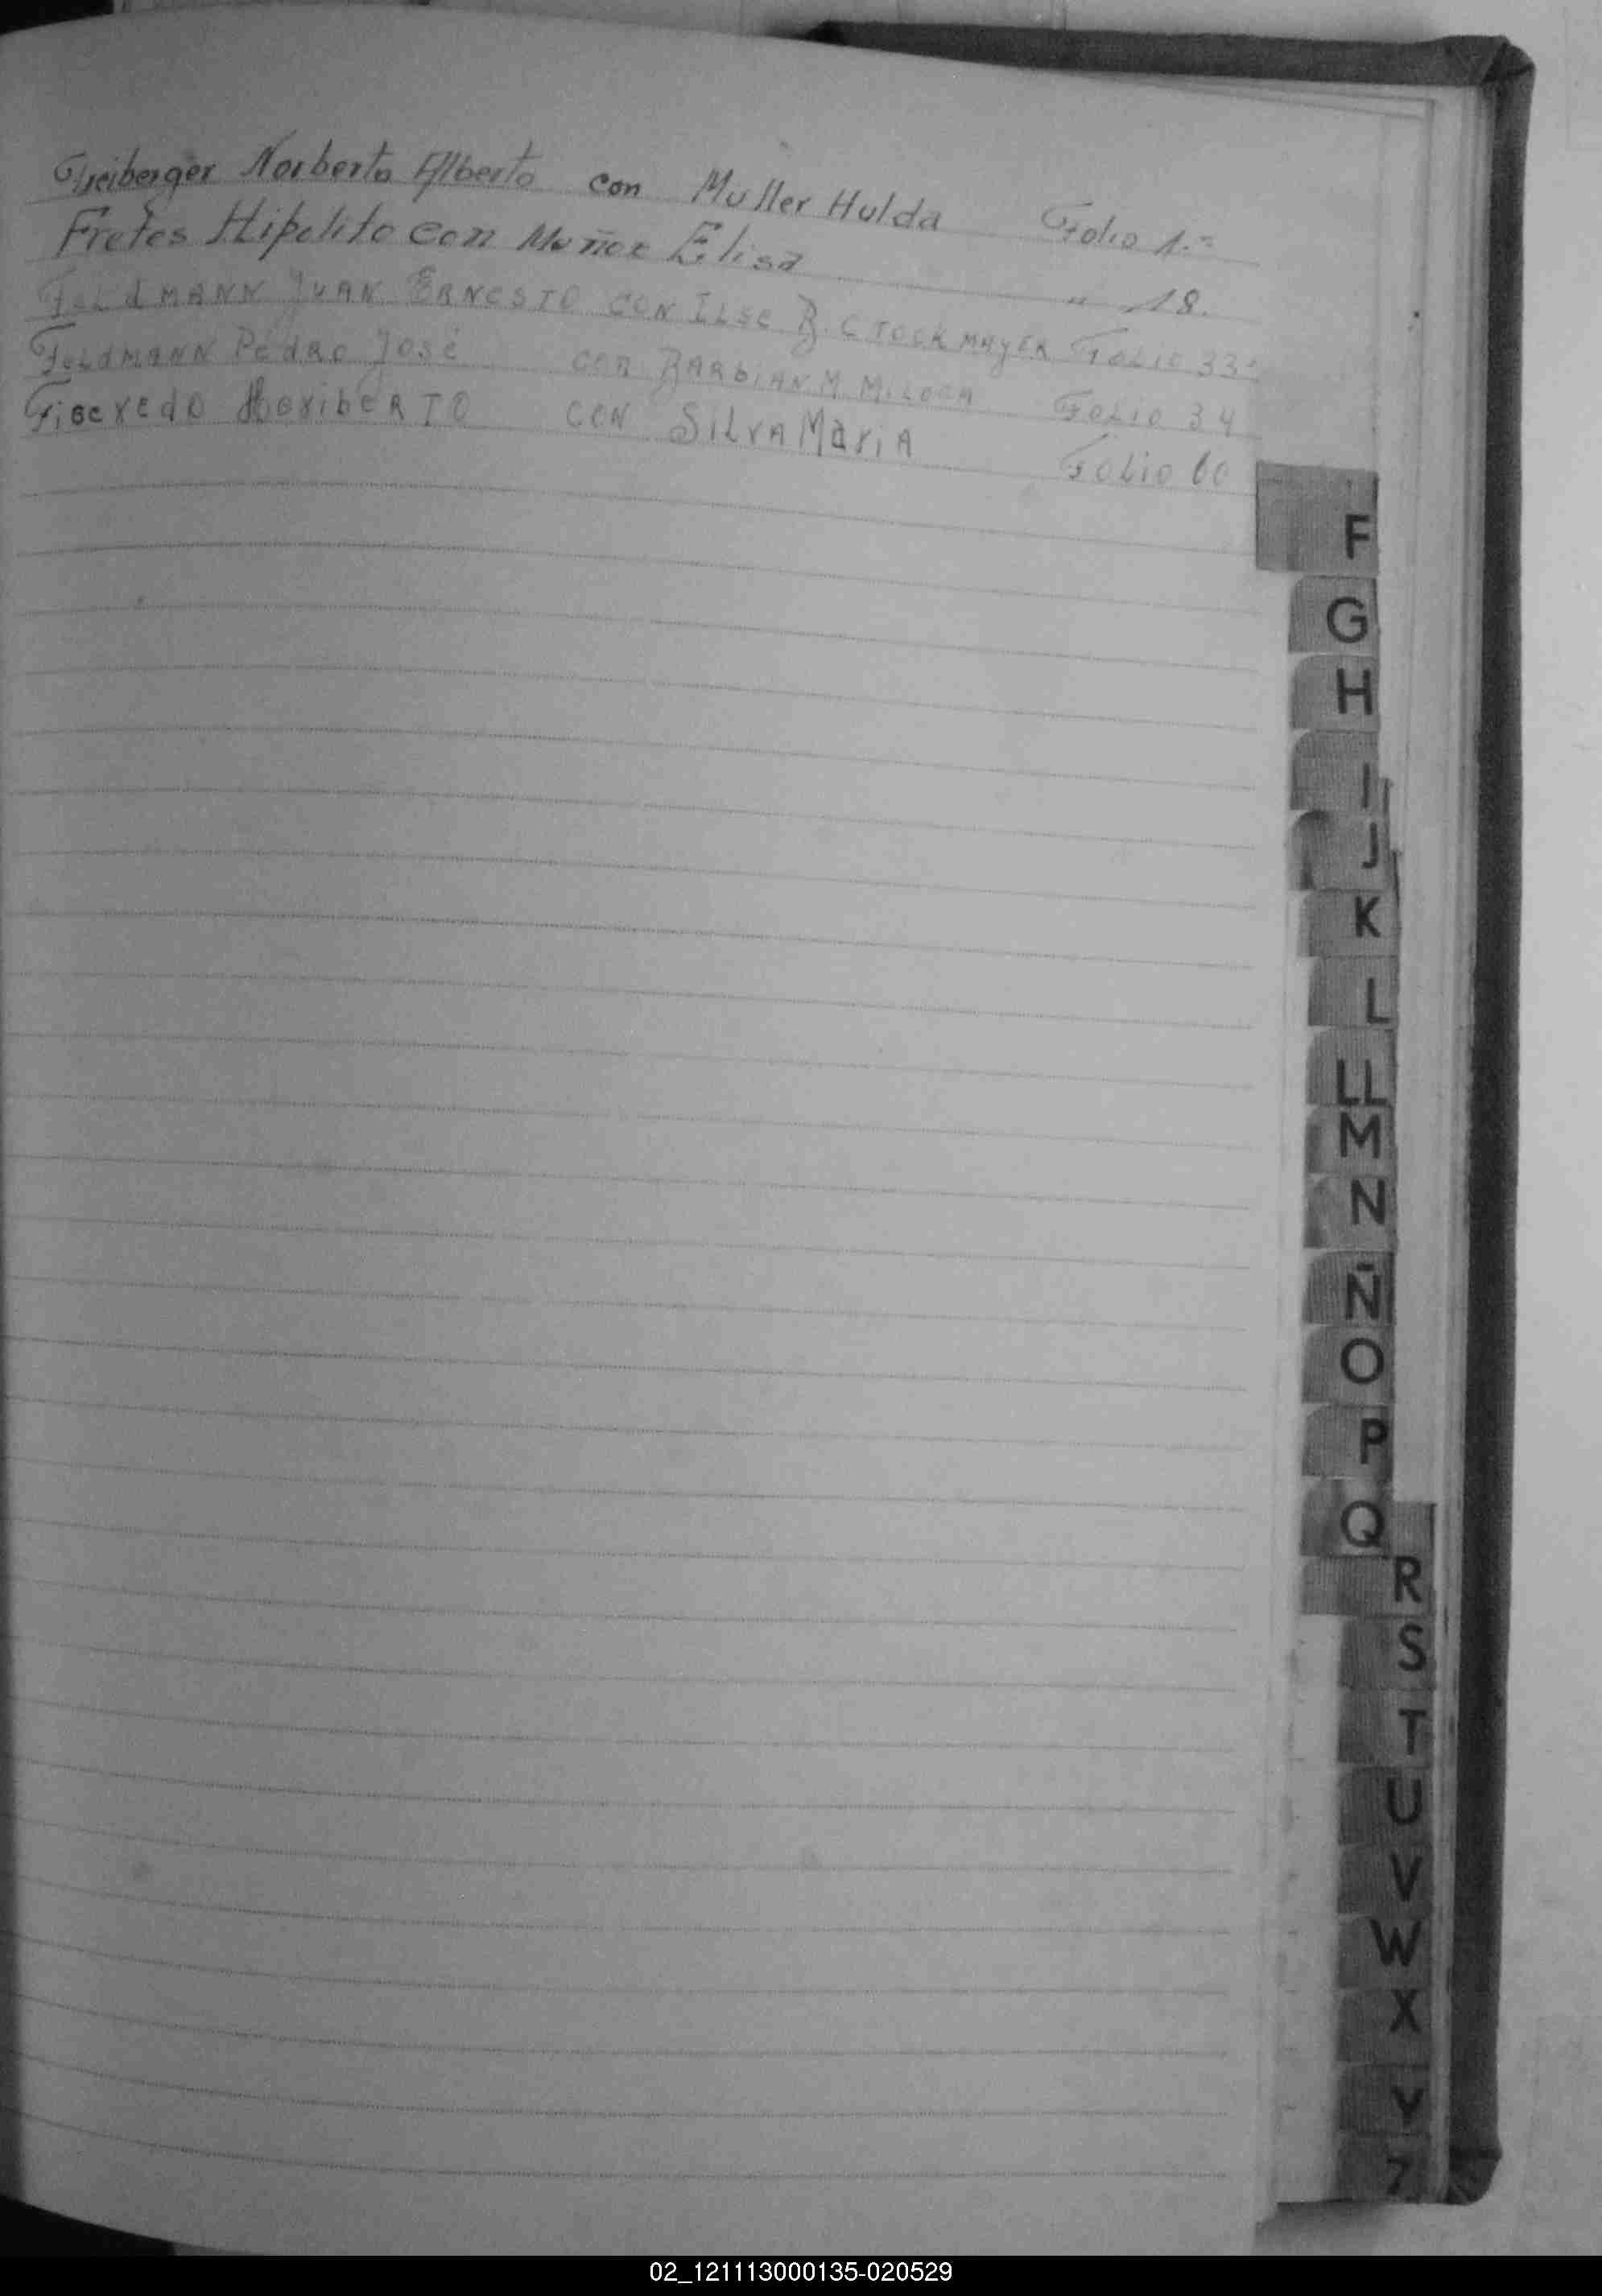 Freiberger Norberto Alberto con Muller Hulda Folio 1.=
Fretes Hipolito con Muñoz Elisa " 18.
FELdMANN JUAN ERNESTO CON ILSE R. CTOCKMAYER FOLIO 33
FELdMANN PEdRO JOSÉ CON BARBIAN M. FOLIO 34
HERibERTO CON SILVA MARiA FOLIO 60
F
G
H
I
J
K
L
LL
M
N
Ñ
O
P
Q
R
S
T
U
V
W
X
Y
Z
02_121113000135-020529